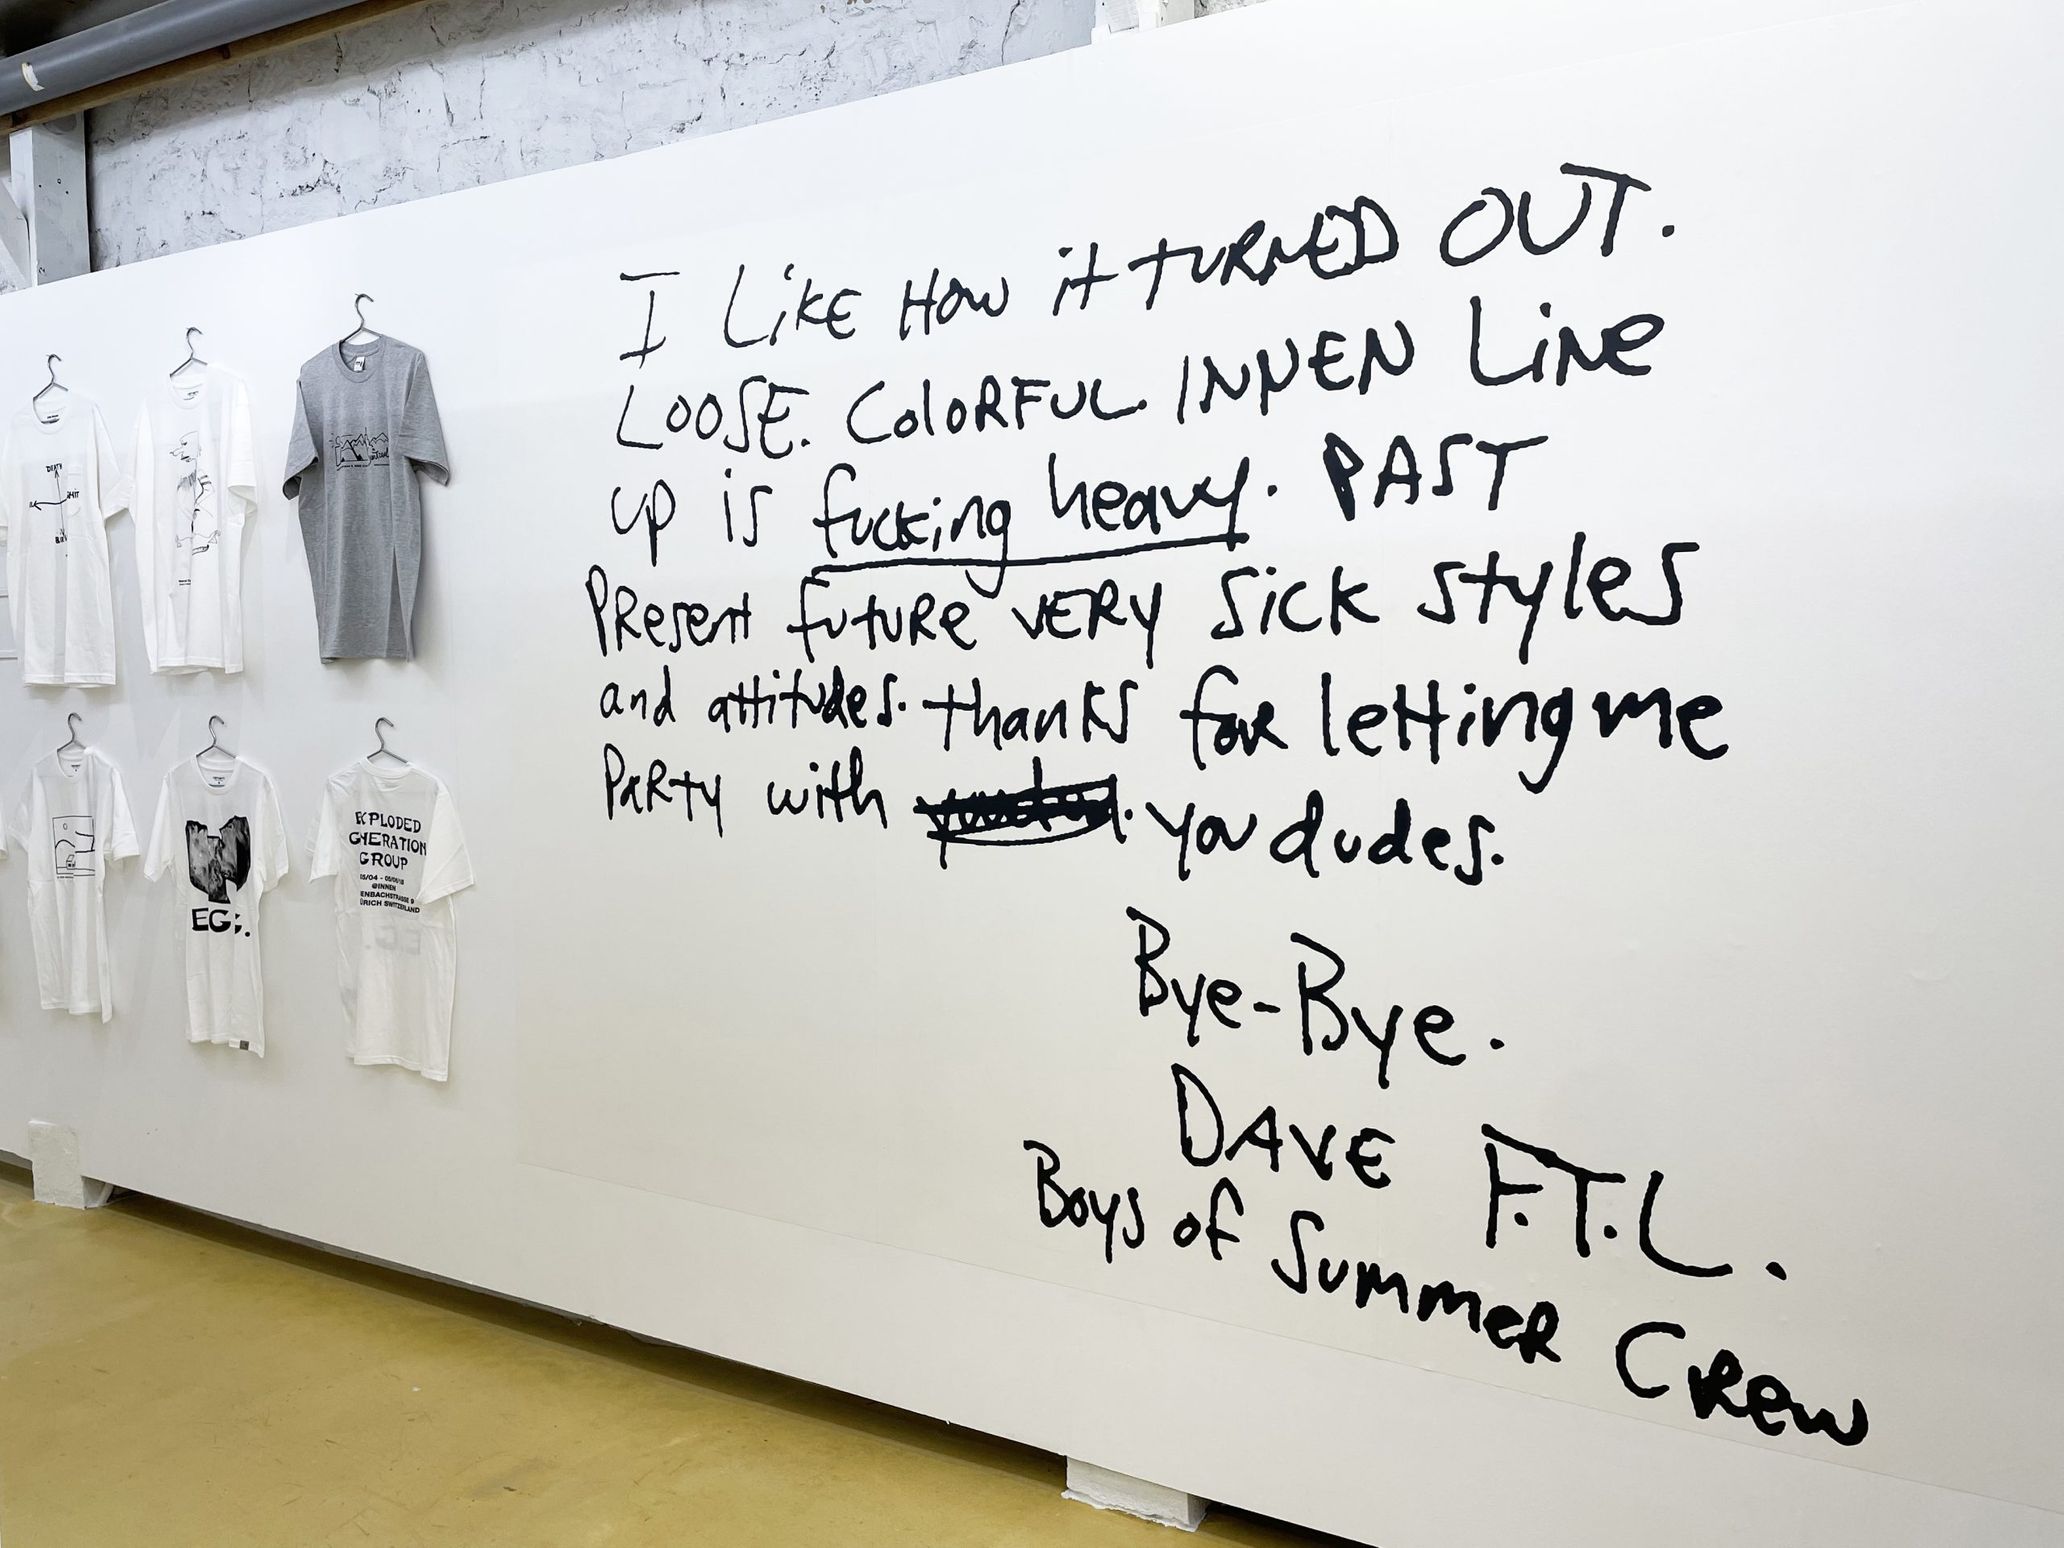 I LiKE How it TURNED OUT.
LOOSE. ColoRFUL. INNEN LiNe
up is fucking heavy. PAST
PResent futuRe VERY Sick styles
and attitudes. thanks for letting me
PaRTy with you dudes.
Bye-Bye.
DAVE F.T.L.
Boys of SummeR CRew
DEATH
SHIT
EG
EXPLODED
GENERATION
GROUP
05/04 -
@INNEN
ENBACHSTRASSE 9
ÜRICH SWITZERLAND